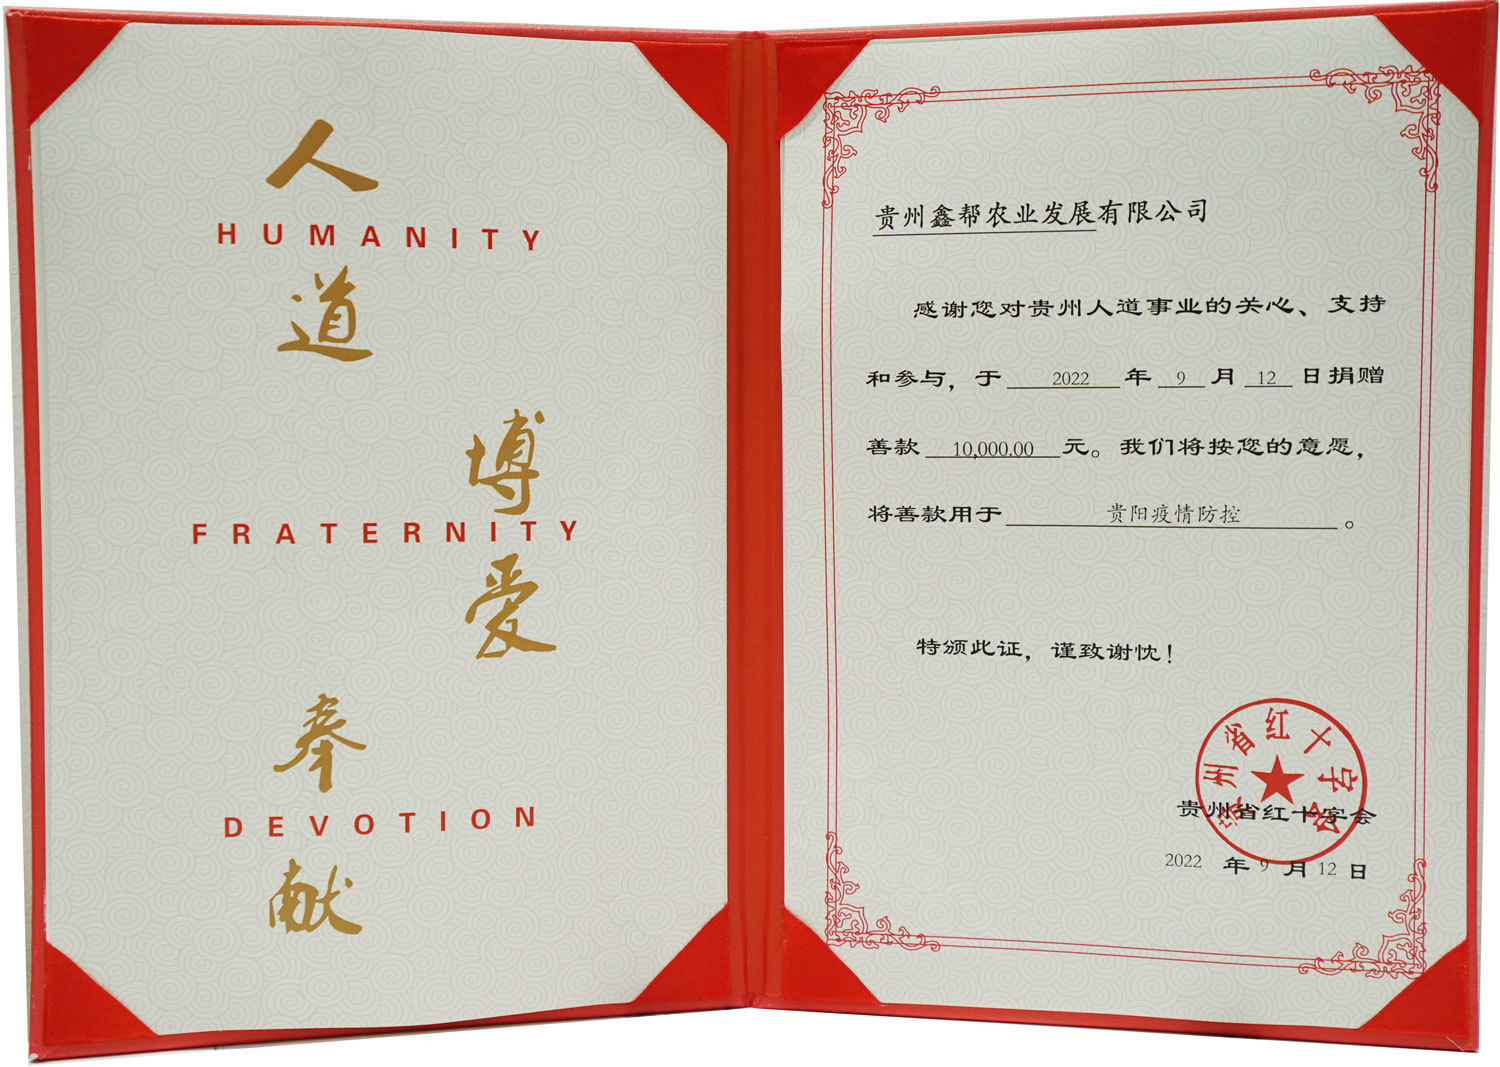 人
HUMANITY
道
博
FRATERNITY
爱
奉
DEVOTION
献
贵州鑫帮农业发展有限公司
感谢您对贵州人道事业的关心、支持
和参与，于 2022 年 9 月 12 日捐赠
善款 10,000.00 元。我们将按您的意愿，
将善款用于 贵阳疫情防控 。
特颁此证，谨致谢忱！
贵州省红十字会
贵州省红十字会
2022 年 9 月 12 日